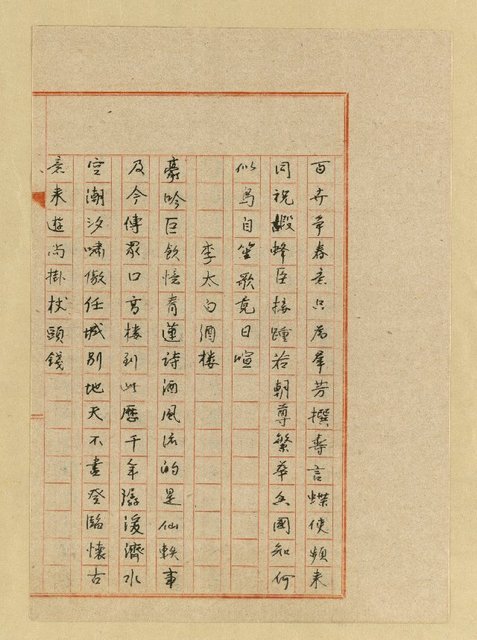 百卉争春意只为群芳撰寿言蝶使频来
同祝嘏蜂臣接踵若朝尊繁华六国知何
似鸟自笙歌竟日喧
李太白酒楼
豪吟巨饮忆青莲诗酒风流的是仙轶事
及今传众口高楼到此历千年潺湲济水
空潮汐啸傲任城别地天不尽登临怀古
意来游尚挂杖头钱